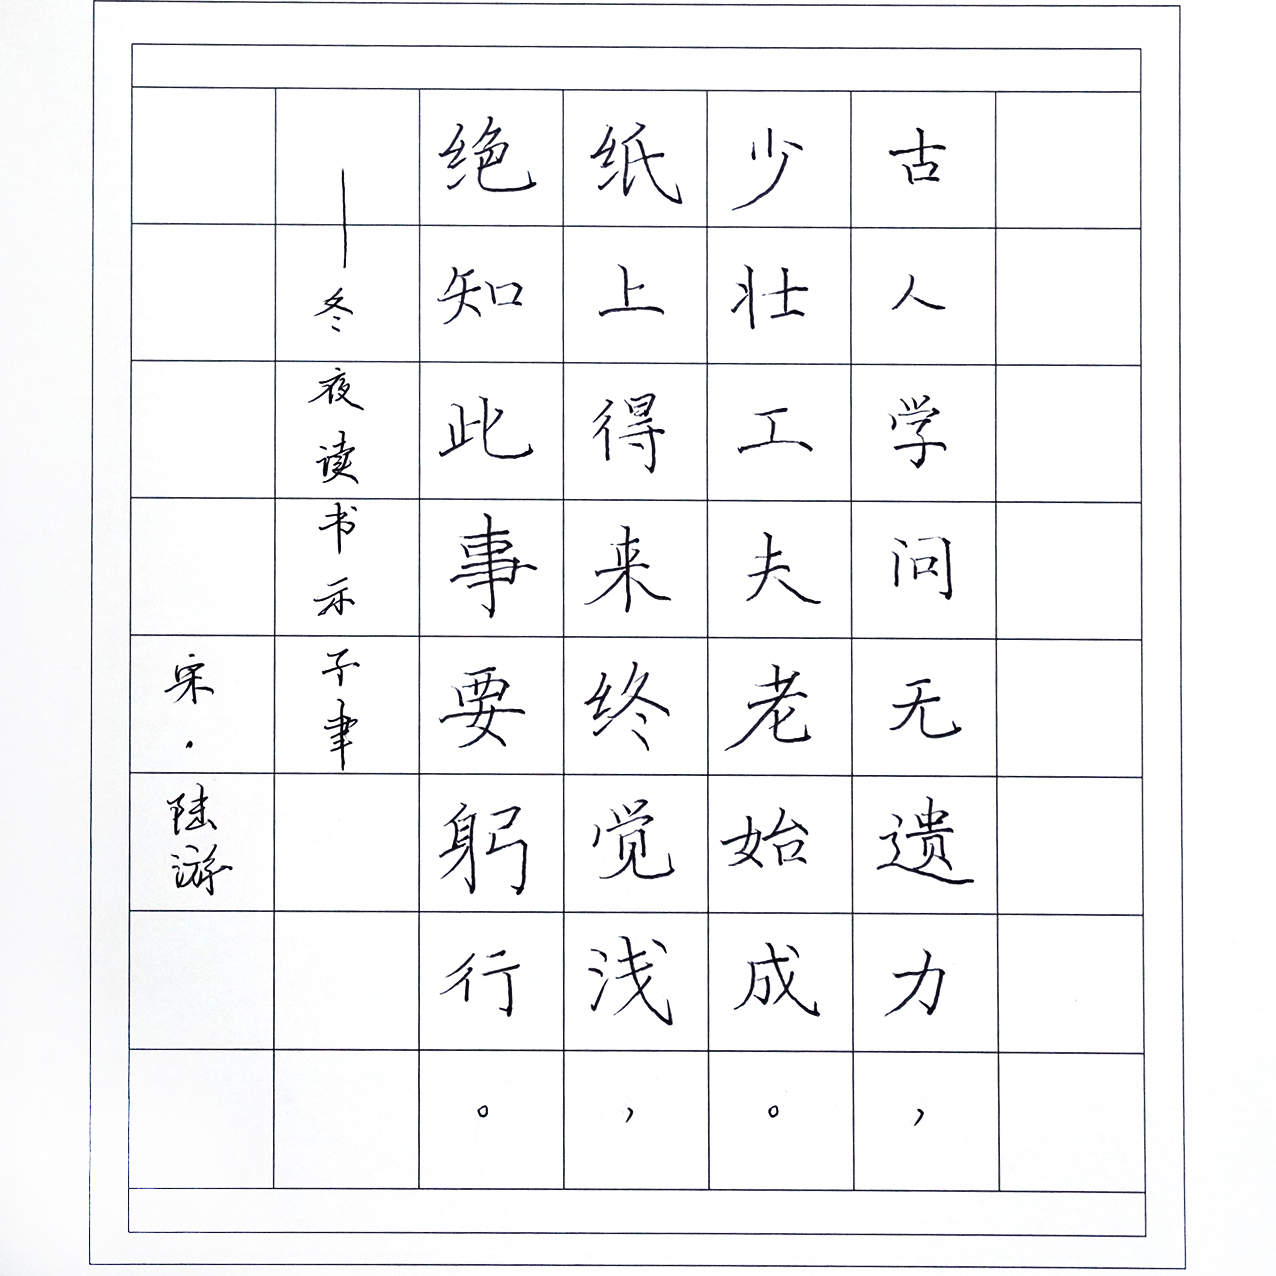 古人学问无遗力，
少壮工夫老始成。
纸上得来终觉浅，
绝知此事要躬行。
——冬夜读书示子聿
宋·陆游